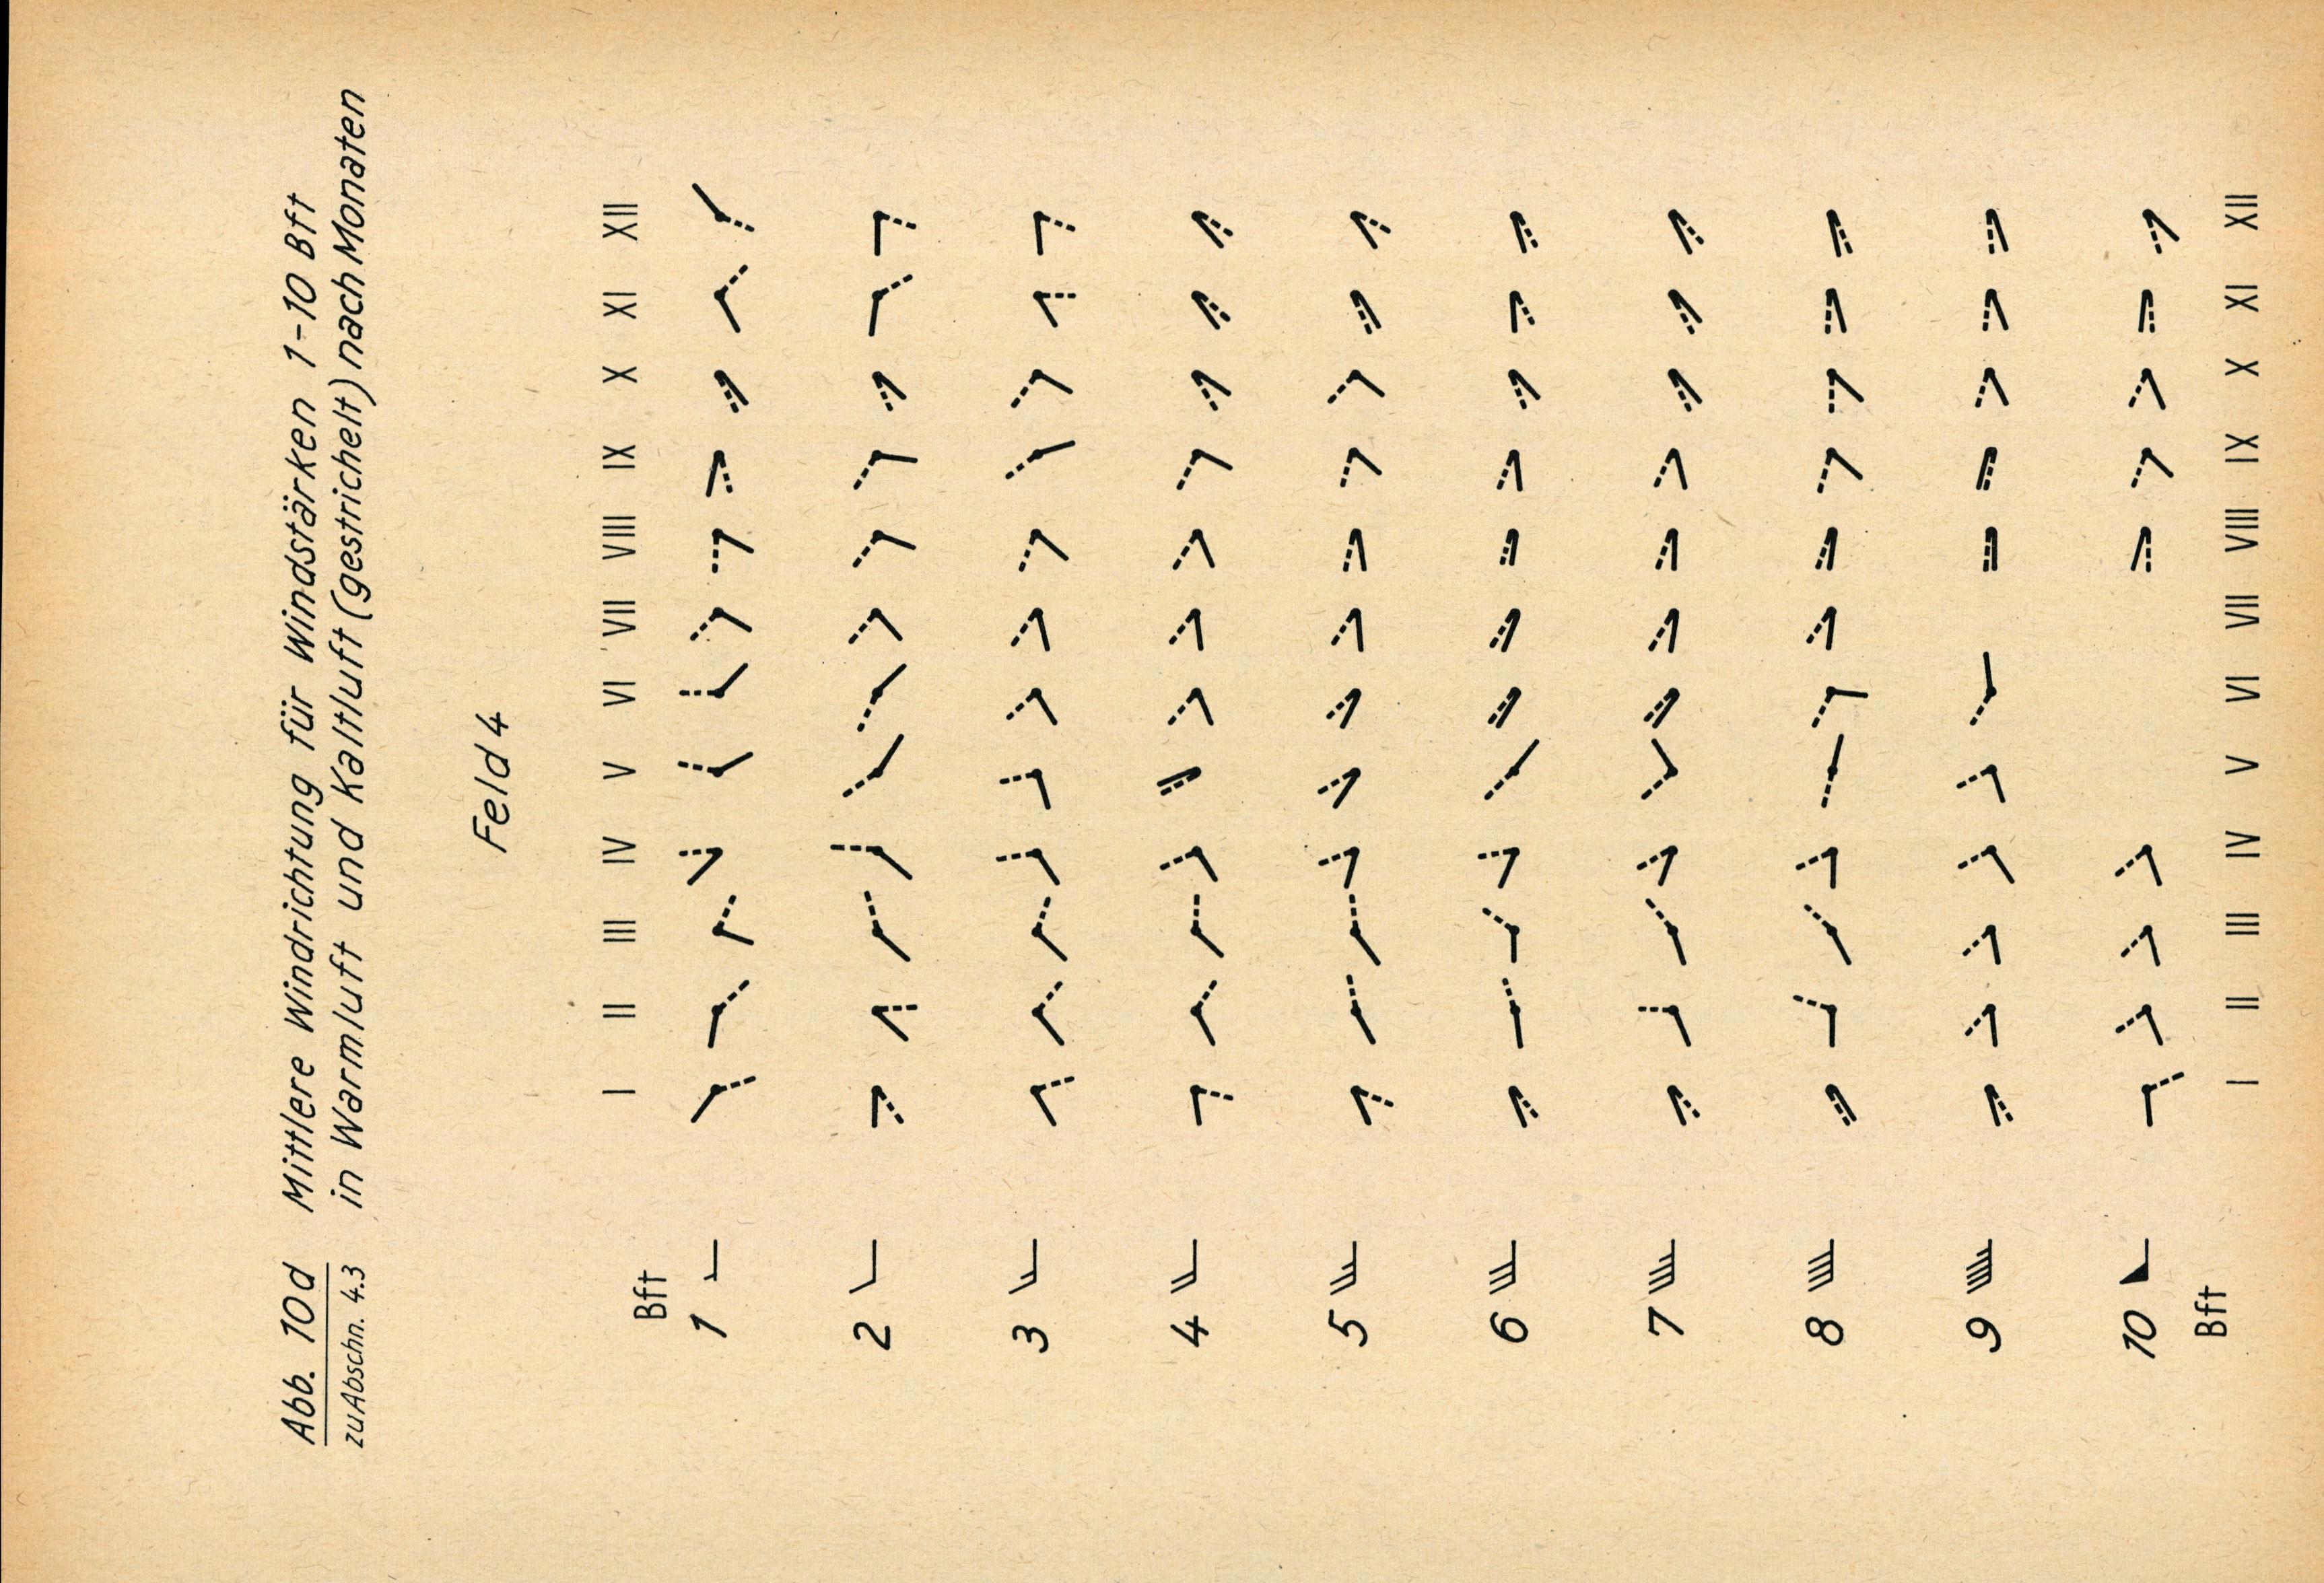 Abb. 10d Mittlere Windrichtung für Windstärken 1-10 Bft
zu Abschn. 4.3 in Warmluft und Kaltluft (gestrichelt) nach Monaten
Feld 4
I II III IV V VI VII VIII IX X XI XII
Bft
1
2
3
4
5
6
7
8
9
10
Bft
I II III IV V VI VII VIII IX X XI XII